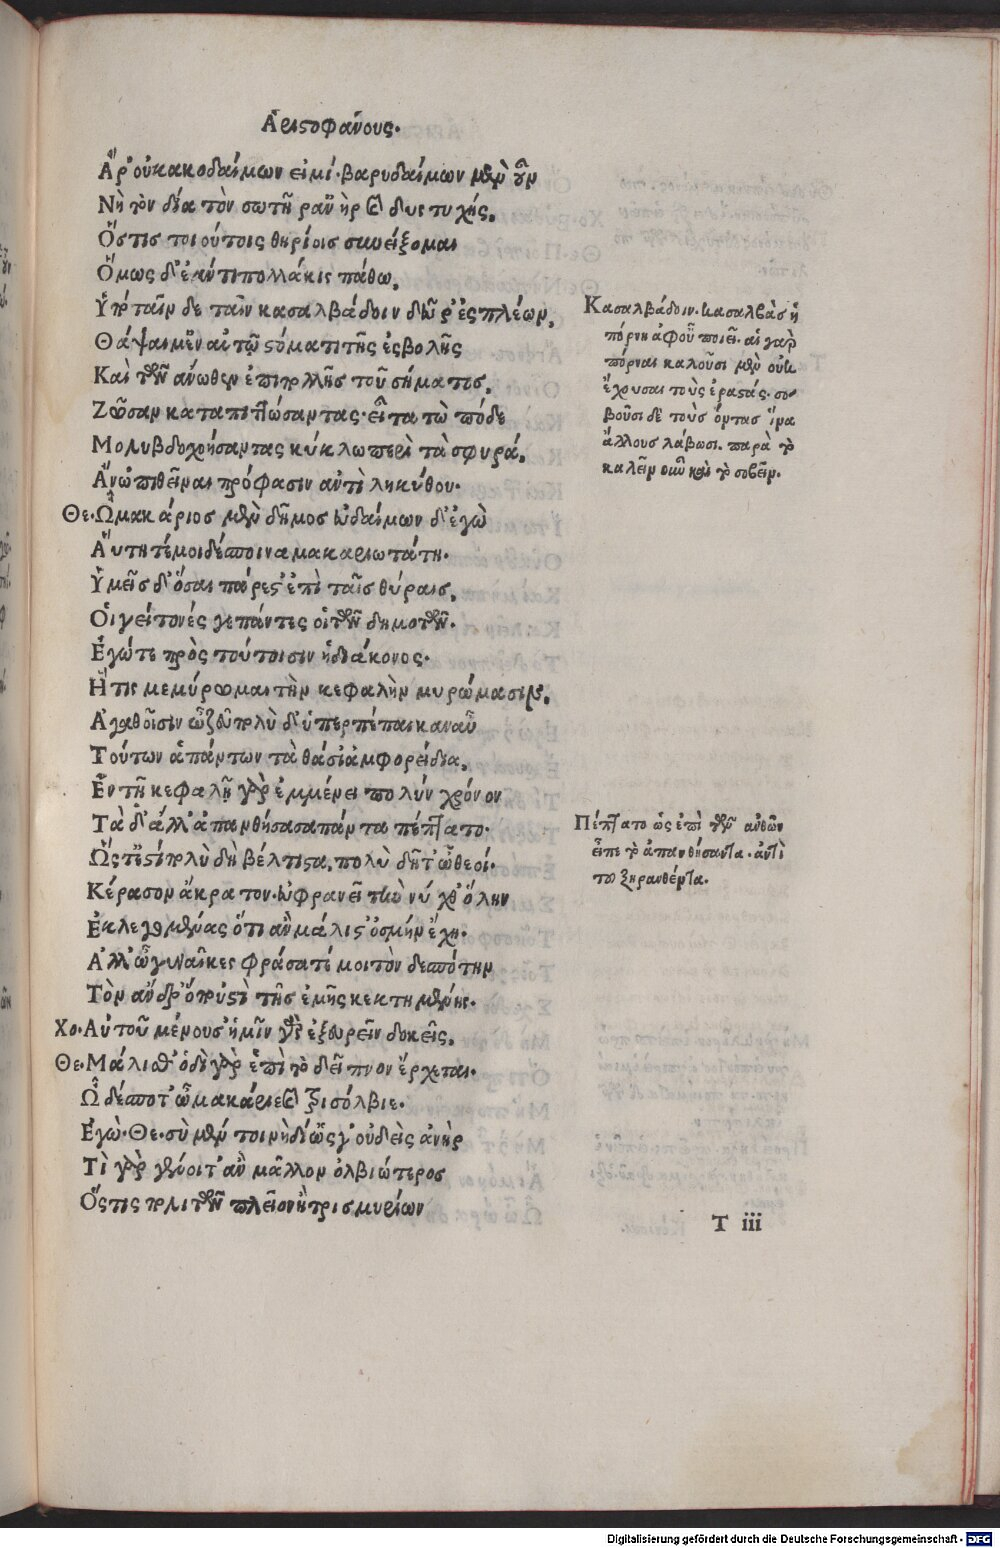 Ἀριστοφάνους.
Ἆρ' οὐ κακοδαίμων εἰμί. βαρυδαίμων μὲν οὖν
Νὴ τὸν δία τὸν σωτῆρ' ἀνὴρ καὶ δυστυχής,
Ὅστις τοιούτοις θηρίοις συνείξομαι
Ὅμως δ' ἐάν τι πολλάκις πάθω,
Ὑπὸ ταῖν δε ταῖν κασαλβάδοιν δεῦρ' ἐσπλέων,
Θάψαι μ' ἐν αὐτῷ στόματι τῆς ἐσβολῆς
Καὶ τῶν ἄνωθεν ἐπιπολλῆς τοῦ σήματος,
Ζῶσαν καταπιττώσαντας. εἶτα τὼ πόδε
Μολυβδοχοήσαντας κύκλω περὶ τὰ σφυρά,
Ἄνω πιθεῖναι πρόφασιν ἀντὶ ληκύθου.
Θε. Ὦ μακάριος μὲν δῆμος εὐδαίμων δ' ἐγὼ
Ἄυτη τέ μοι δέσποινα μακαριωτάτη.
Ὑμεῖς δ' ὅσαι πάρεστ' ἐπὶ ταῖς θύραις,
Οἱ γείτονές γε πάντες οἱ τῶν δημοτῶν.
Ἐγώ τε πρὸς τούτοισιν ἡ διάκονος.
Ἥτις μεμύρωμαι τὴν κεφαλὴν μυρώμασιν,
Ἀγαθοῖσιν ὦ ζεῦ πολὺ δ' ὑπερπέπαικαν αὖ
Τούτων ἁπάντων τὰ θάσι' ἀμφορείδια,
Ἐν τῇ κεφαλῇ γὰρ ἐμμένει πολὺν χρόνον
Τὰ δ' ἄλλ' ἀπανθήσασα πάντα πέπτατο.
Ὥστ' ἐστὶ πολὺ δὴ βέλτιστα, πολὺ δῆτ' ὦ θεοί.
Κέρασον ἄκρατον. εὐφρανεῖ τὴν νύχθ' ὅλην
Ἐκλεγομένας ὅτι ἂν μάλιστ' ὀσμὴν ἔχῃ.
Ἀλλ' ὦ γυναῖκες φράσατέ μοι τὸν δεσπότην
Τὸν ἄνδρ' ὅπου 'στὶ τῆς ἐμῆς κεκτημένης.
Χο. Αὐτοῦ μένουσ' ἡμῖν γ' ἐξευρεῖν δοκεῖς.
Θε. Μάλισθ' ὁδὶ γὰρ ἐπὶ τὸ δεῖπνον ἔρχεται.
Ὦ δέσποτ' ὦ μακάριε καὶ τρισόλβιε.
Ἐγώ. Θε. σὺ μέν τοι νὴ δί' ὥς γ' οὐδεὶς ἀνὴρ
Τὶ γὰρ γένοιτ' ἂν μᾶλλον ὀλβιώτερος
Ὅστις πολιτῶν πλεῖον ἢ τρισμυρίων
Κασαλβάδοιν. κασαλβὰς ἡ
πόρνη ἀφοῦ ποιεῖ. αἱ γὰρ
πόρναι καλοῦσι μὲν οὐκ
ἔχουσαι τοὺς ἐραστάς. σο-
βοῦσι δὲ τοὺς ὄντας ἵνα
ἄλλους λάβωσι. παρὰ τὸ
καλεῖν οὖν καὶ τὸ σοβεῖν.
Πέπτατο ὡς ἐπὶ τῶν ἀνθῶν
εἶπε τὸ ἀπανθήσαντα. ἀντὶ
του ξηρανθέντα.
T iii
Digitalisierung gefördert durch die Deutsche Forschungsgemeinschaft - DFG